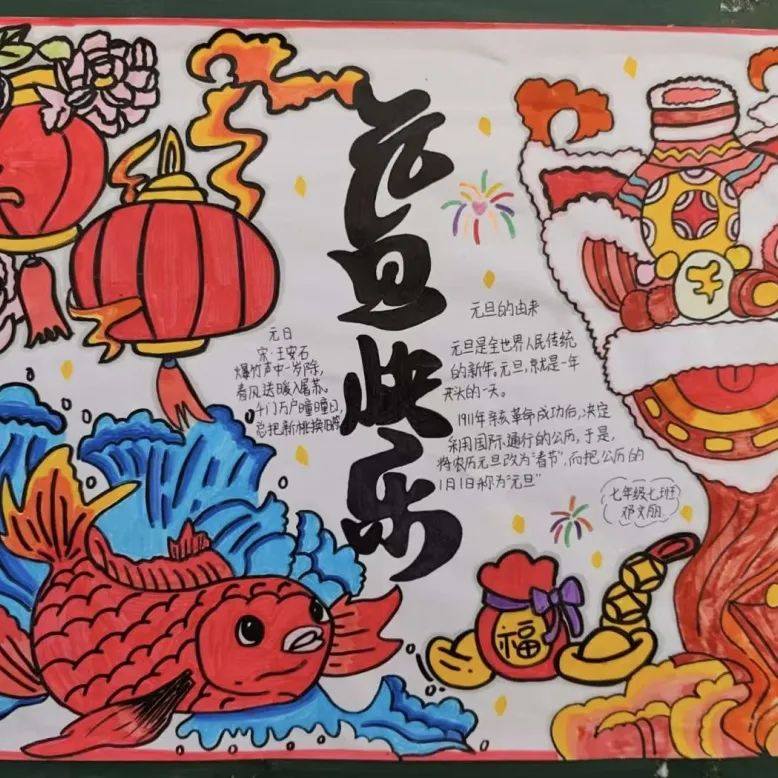 元旦快乐
元日
宋·王安石
爆竹声中一岁除,
春风送暖入屠苏。
千门万户曈曈日,
总把新桃换旧符
元旦的由来
元旦是全世界人民传统
的新年。元旦,就是一年
开头的一天。
1911年辛亥革命成功后,决定
采用国际通行的公历,于是,
将农历元旦改为“春节”,而把公历的
1月1日称为“元旦”
七年级七班
邓文丽
福